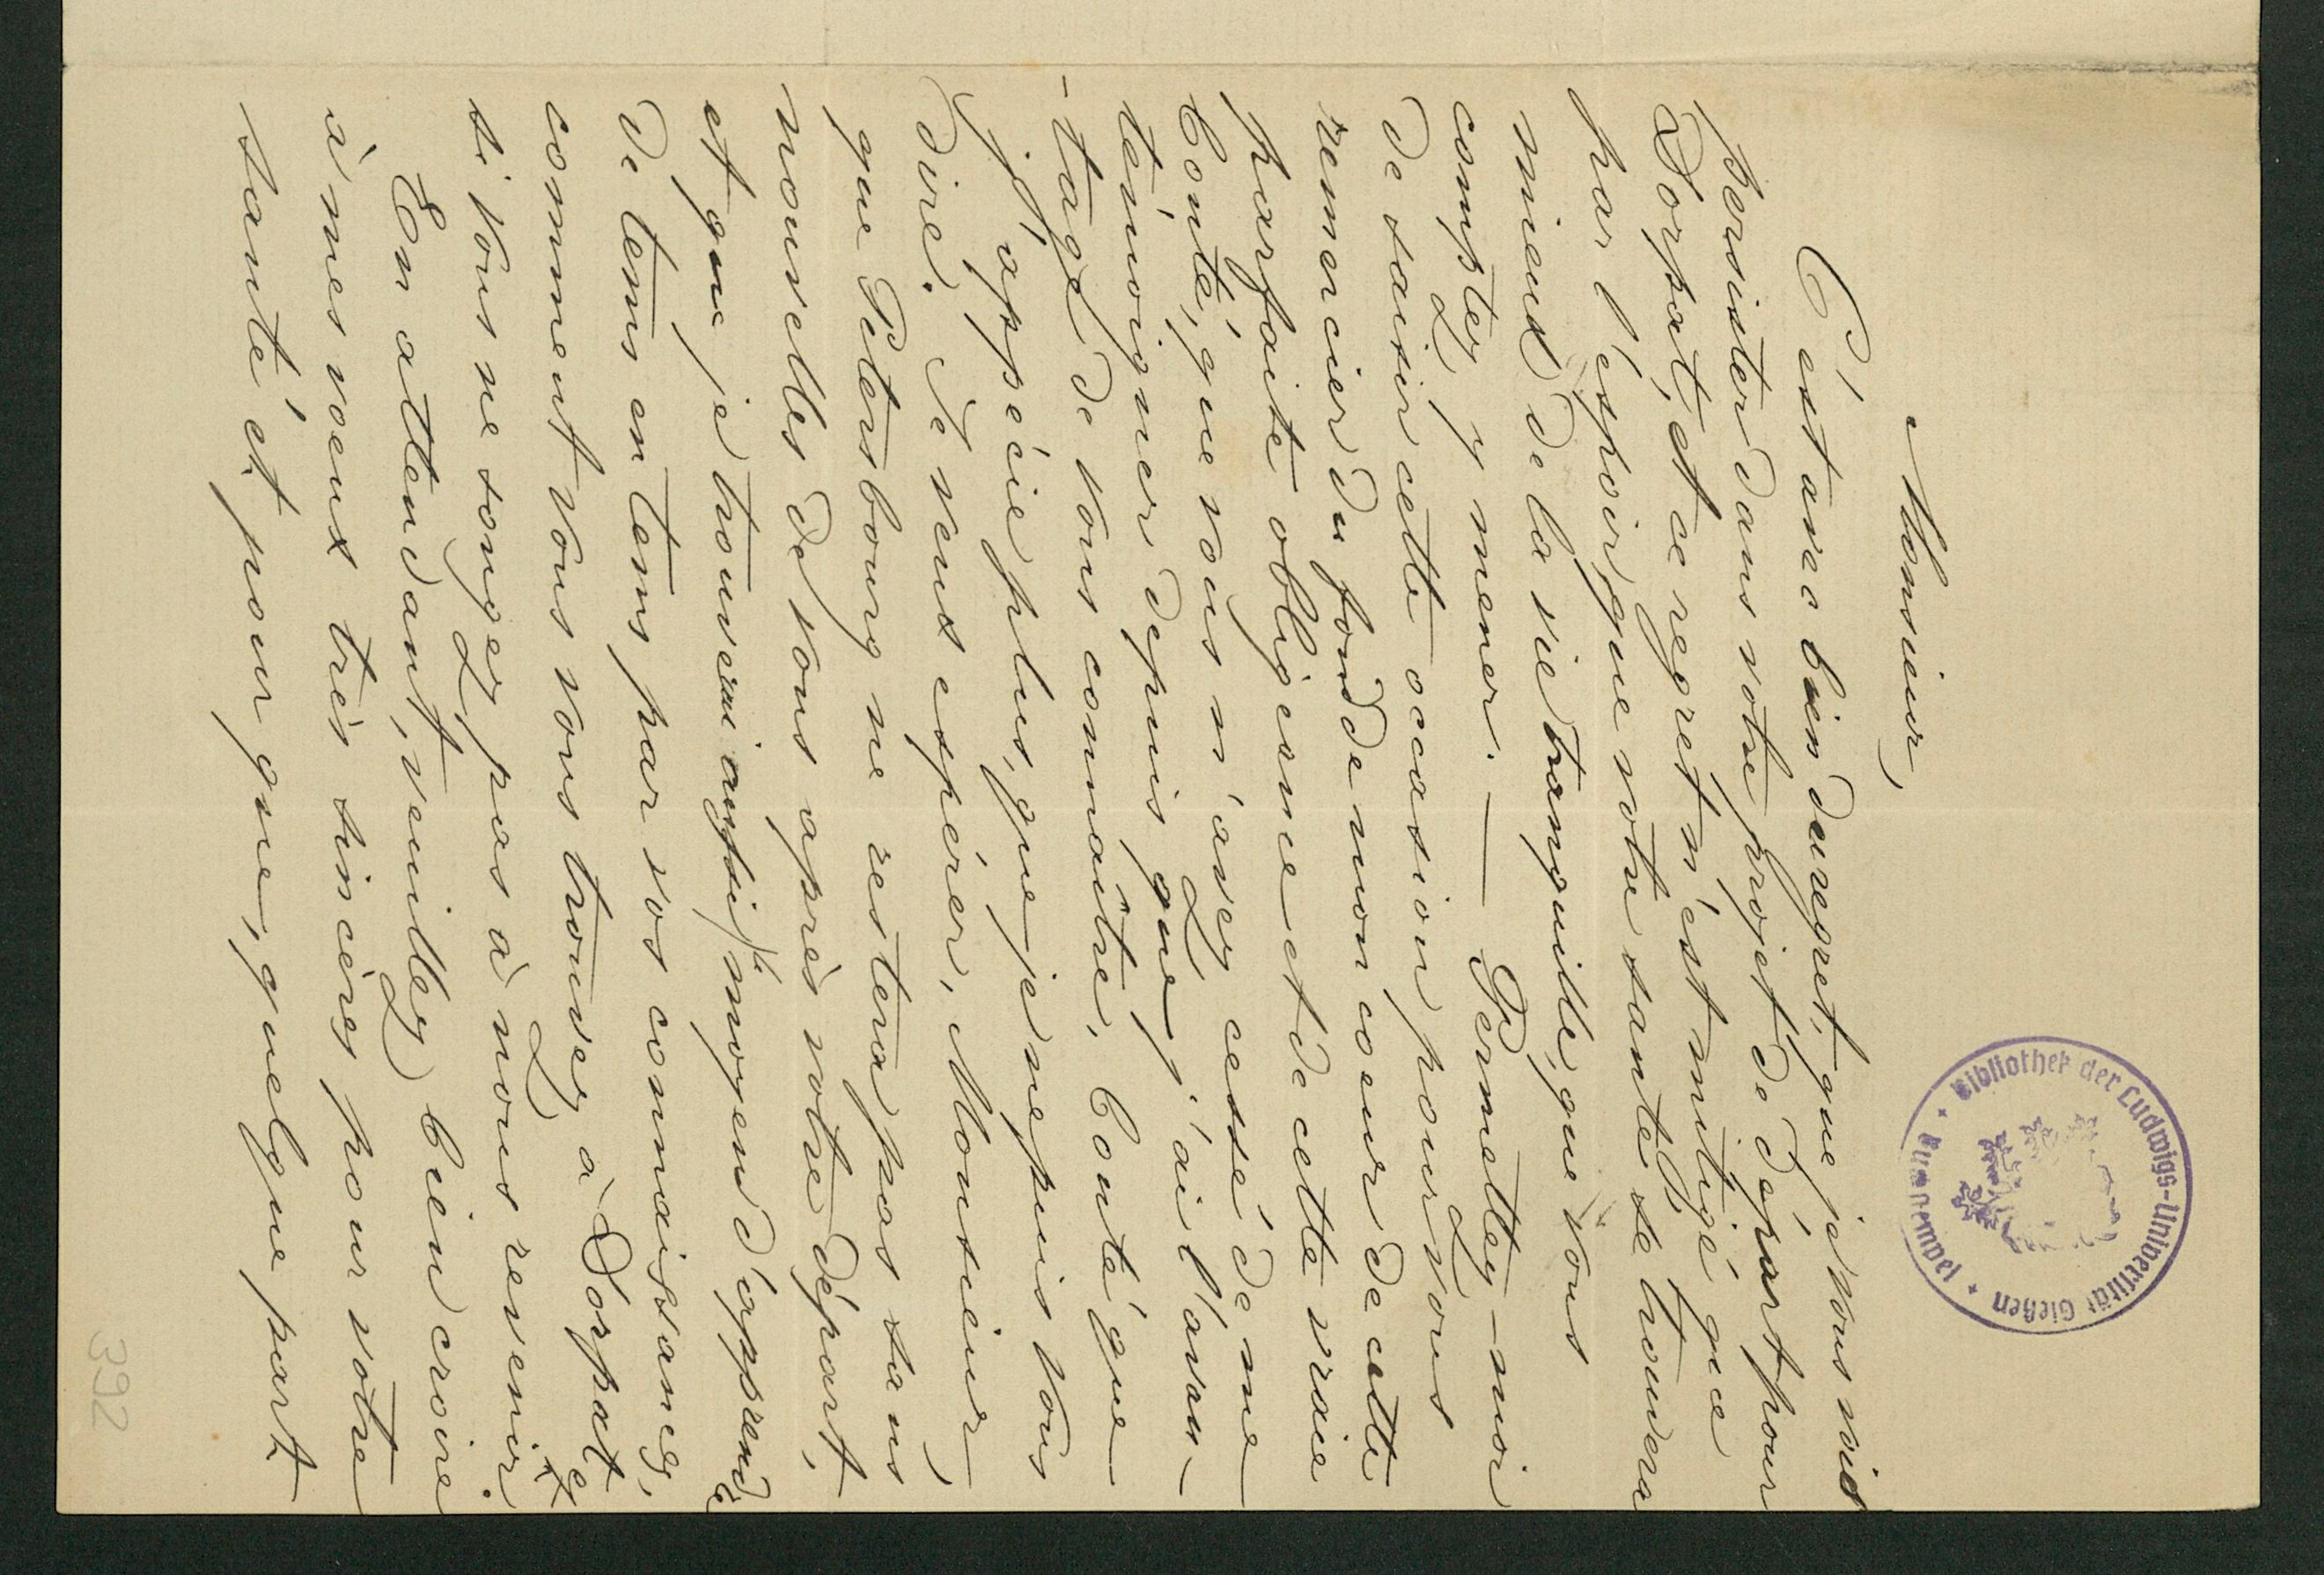 Monsieur,
C'est avec bien du regret, que je vous vois
persister dans votre projet de départ pour
Dorpat, et ce regret n'est mitigé que
par l'éspoir, que votre santé se trouvera
mieux de la vie tranquille, que vous
comptez y mener. — Permettez-moi
de saisir cette occasion pour vous
remercier du fond de mon coeur de cette
parfaite obligeance et de cette vraie
bonté, que vous n'avez cessé de me
témoigner depuis que j'ai l'avan-
-tage de vous connaître, bonté que
j'apprécie plus, que je ne puis vous
dire. Je veux espérer, Monsieur,
que Pétersbourg ne restera pas sans
nouvelles de vous après votre départ,
et que je trouverai aussi le moyen d'apprendre
de tems en tems par vos connaissances,
comment vous vous trouvez à Dorpat et
si vous ne songez pas à nous revenir.
En attendant, veuillez bien croire
à mes voeux très sincères pour votre
santé et pour que, quelque part
Bibliothek der Ludwigs-Universität Gießen
392